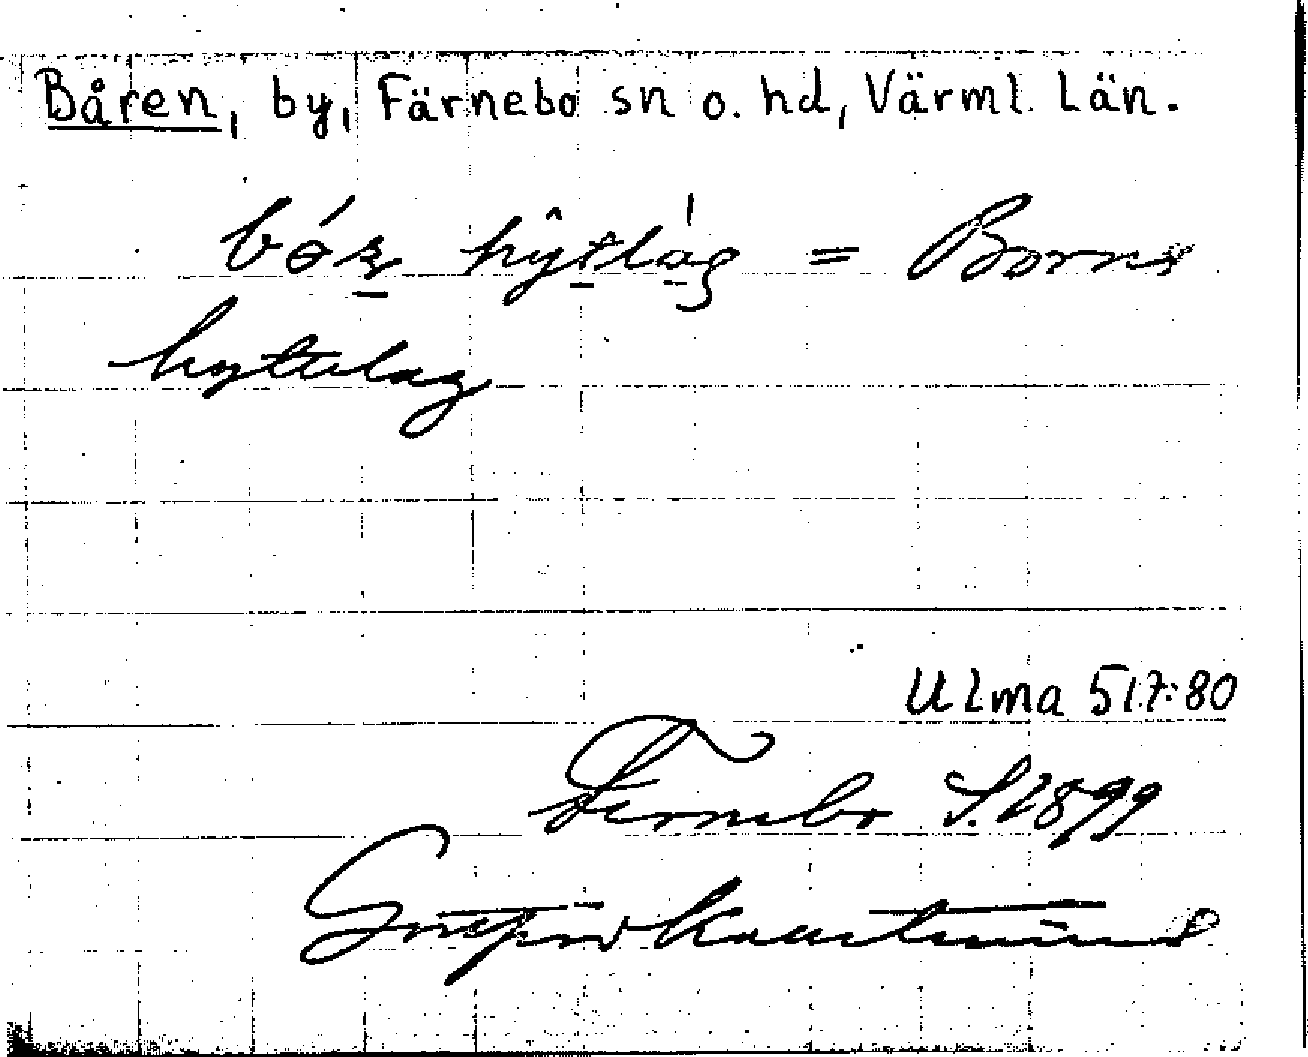 Båren, by, Färnebo sn o. hd, Värml. Län.
hytlag = Borns
hyttelag
Ulma 517:80
Fernebo S. 1899